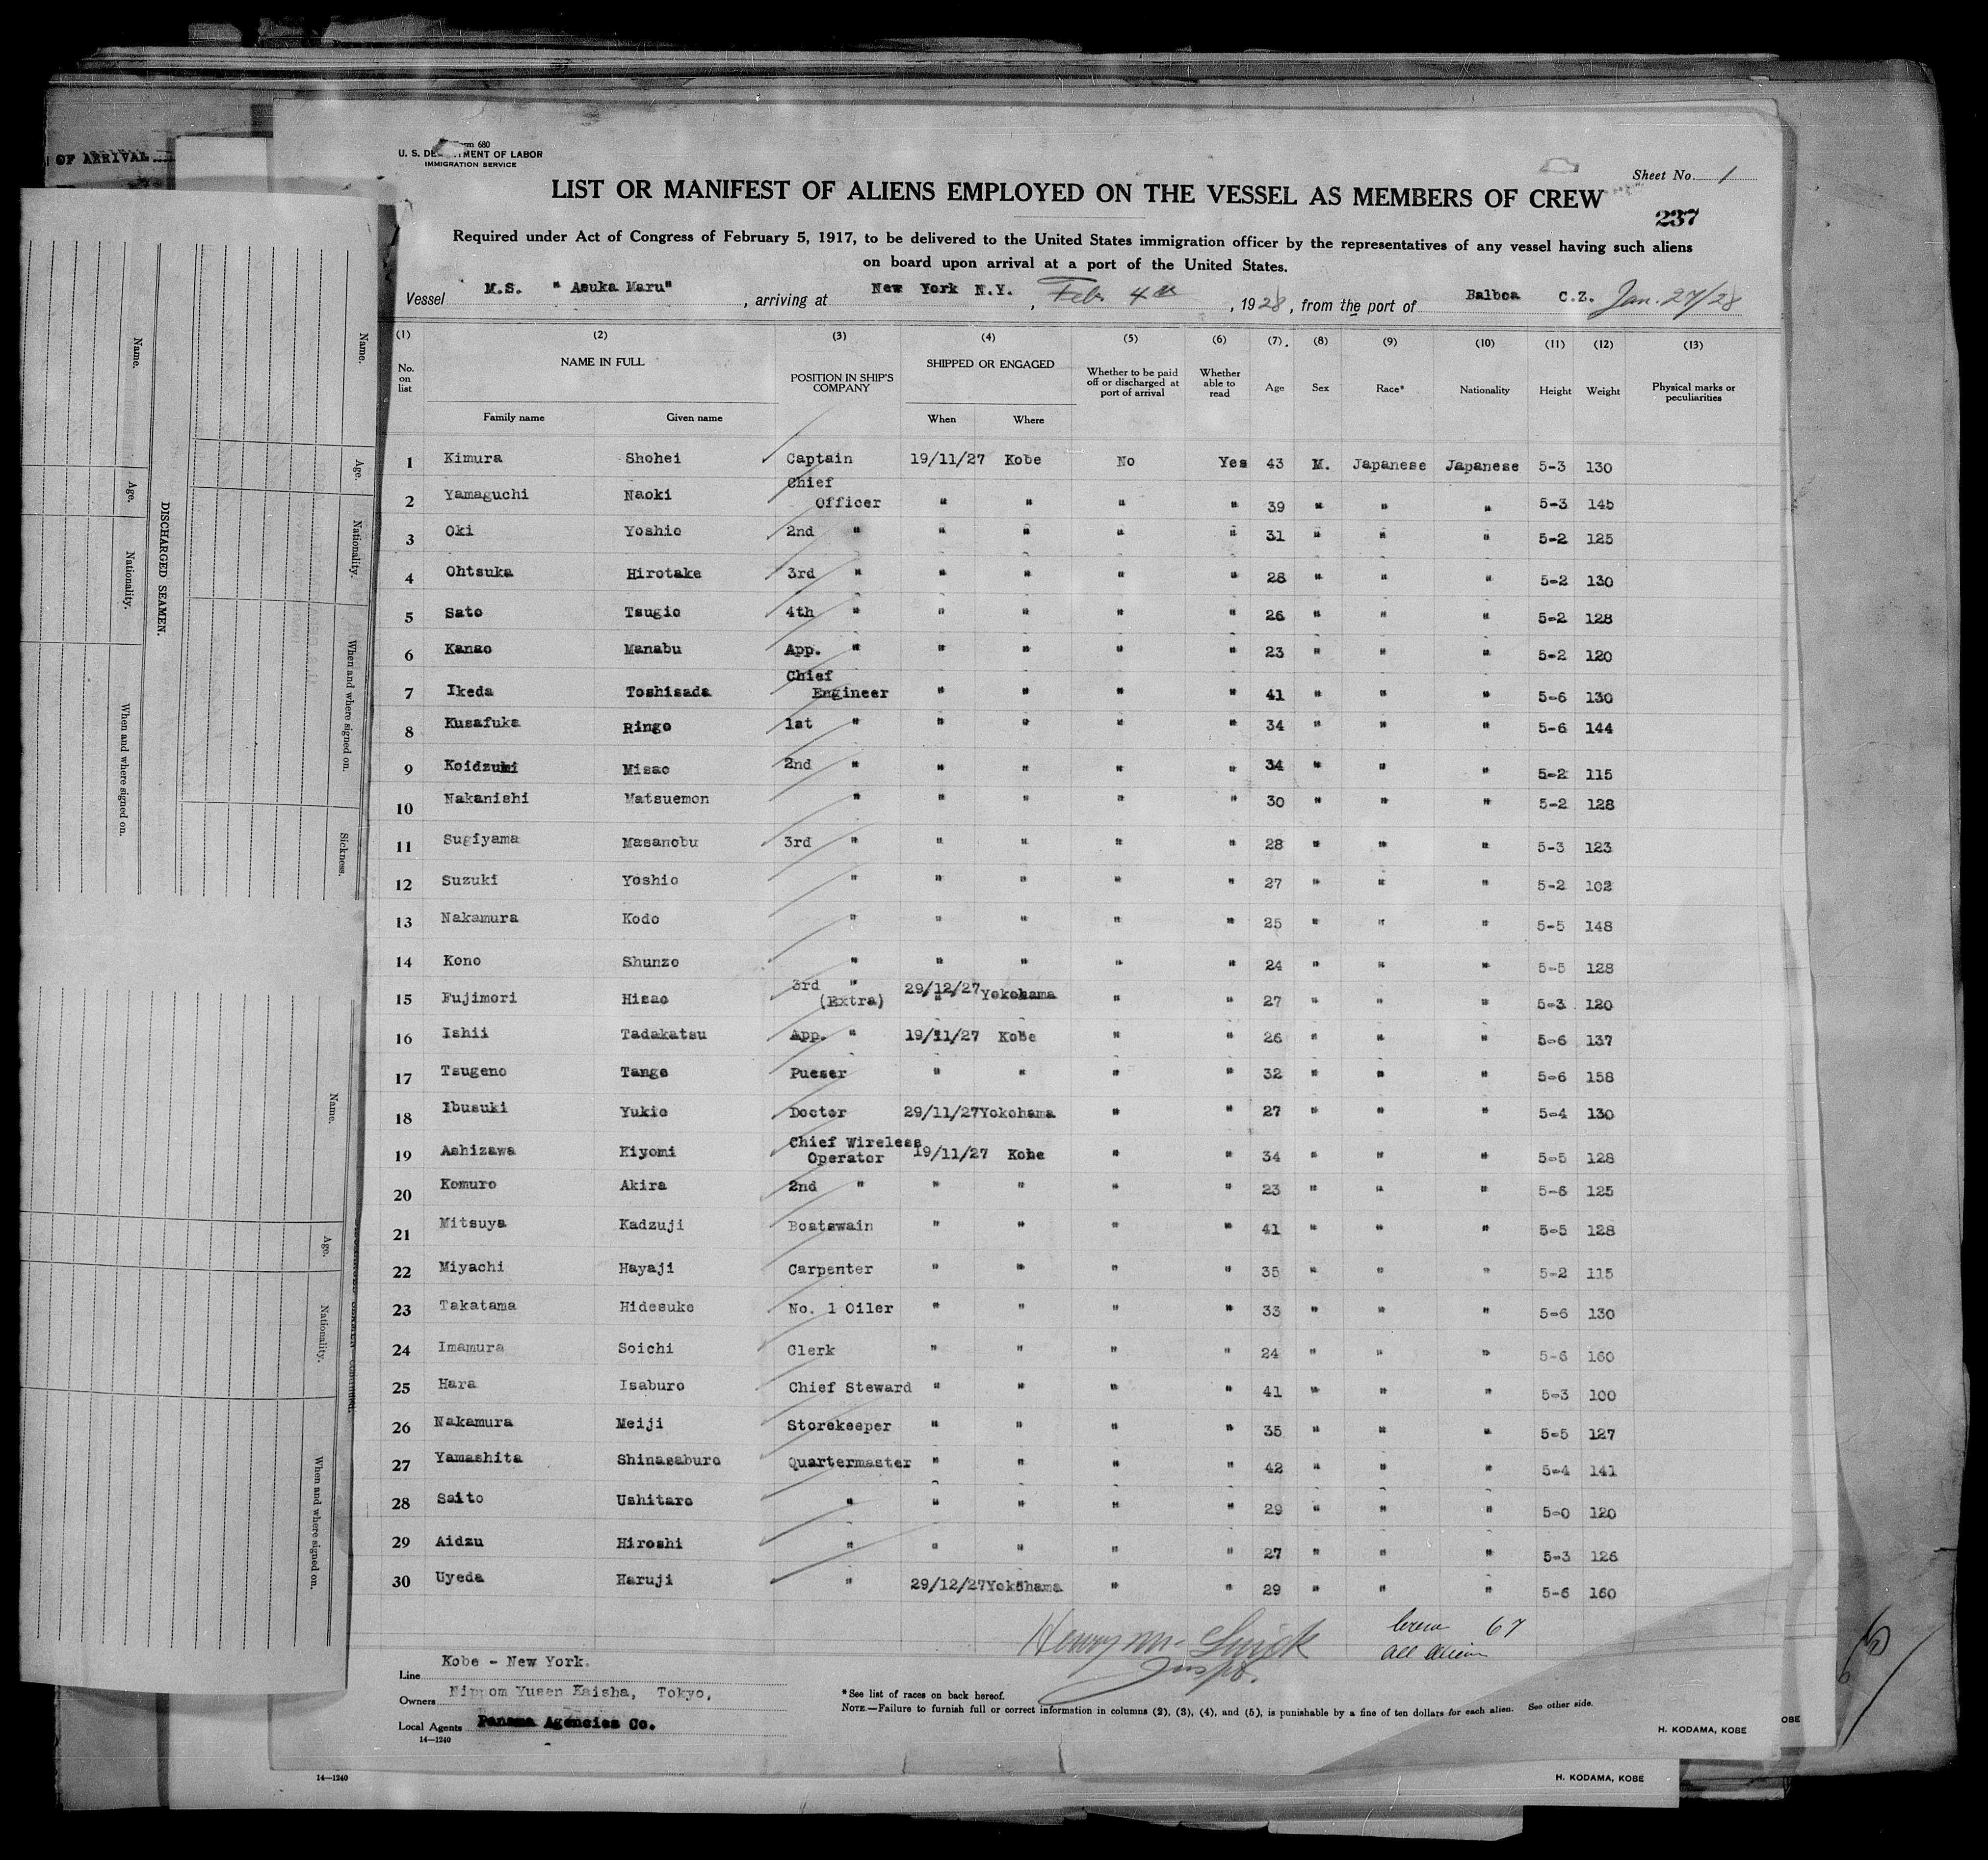 OF ARRIVAL
Form 680
U. S. DEPARTMENT OF LABOR
IMMIGRATION SERVICE
Sheet No. 1
LIST OR MANIFEST OF ALIENS EMPLOYED ON THE VESSEL AS MEMBERS OF CREW
237
Required under Act of Congress of February 5, 1917, to be delivered to the United States immigration officer by the representatives of any vessel having such aliens
on board upon arrival at a port of the United States.
Vessel M.S. " Asuka Maru" , arriving at New York N.Y. , Feb. 4th , 1928 , from the port of Balboa C.Z. Jan. 27/28
(1) (2) (3) (4) (5) (6) (7). (8) (9) (10) (11) (12) (13)
No. on list NAME IN FULL Family name Given name POSITION IN SHIP'S COMPANY SHIPPED OR ENGAGED When Where Whether to be paid off or discharged at port of arrival Whether able to read Age Sex Race* Nationality Height Weight Physical marks or peculiarities
1 Kimura Shohei Captain 19/11/27 Kobe No Yes 43 M. Japanese Japanese 5-3 130
2 Yamaguchi Naoki Chief Officer " " " " 39 " " " 5-3 145
3 Oki Yoshio 2nd " " " " " 31 " " " 5-2 125
4 Ohtsuka Hirotake 3rd " " " " " 28 " " " 5-2 130
5 Sato Tsugio 4th " " " " " 26 " " " 5-2 128
6 Kanao Manabu App. " " " " " 23 " " " 5-2 120
7 Ikeda Toshisada Chief Engineer " " " " 41 " " " 5-6 130
8 Kusafuka Ringo 1st " " " " " 34 " " " 5-6 144
9 Koidzumi Misao 2nd " " " " " 34 " " " 5-2 115
10 Nakanishi Matsuemon " " " " " 30 " " " 5-2 128
11 Sugiyama Masanobu 3rd " " " " " 28 " " " 5-3 123
12 Suzuki Yoshio " " " " " 27 " " " 5-2 102
13 Nakamura Kodo " " " " " 25 " " " 5-5 148
14 Kono Shunzo " " " " " 24 " " " 5-5 128
15 Fujimori Hisao 3rd " (Extra) 29/12/27 Yokohama " " 27 " " " 5-3 120
16 Ishii Tadakatsu App. " 19/11/27 Kobe " " 26 " " " 5-6 137
17 Tsugeno Tango Pueser " " " " 32 " " " 5-6 158
18 Ibusuki Yukio Doctor 29/11/27 Yokohama " " 27 " " " 5-4 130
19 Ashizawa Kiyomi Chief Wireless Operator 19/11/27 Kobe " " 34 " " " 5-5 128
20 Komuro Akira 2nd " " " " " 23 " " " 5-6 125
21 Mitsuya Kadzuji Boatswain " " " " 41 " " " 5-5 128
22 Miyachi Hayaji Carpenter " " " " 35 " " " 5-2 115
23 Takatama Hidesuke No. 1 Oiler " " " " 33 " " " 5-6 130
24 Imamura Soichi Clerk " " " " 24 " " " 5-6 160
25 Hara Isaburo Chief Steward " " " " 41 " " " 5-3 100
26 Nakamura Meiji Storekeeper " " " " 35 " " " 5-5 127
27 Yamashita Shinasaburo Quartermaster " " " " 42 " " " 5-4 141
28 Saito Ushitaro " " " " " 29 " " " 5-0 120
29 Aidzu Hiroshi " " " " " 27 " " " 5-3 126
30 Uyeda Haruji " 29/12/27 Yokohama " " 29 " " " 5-6 160
Crew 67
All Alien
Line Kobe - New York.
Owners Nippom Yusen Kaisha, Tokyo,
Local Agents Panama Agencies Co.
14—1240
*See list of races on back hereof.
NOTE.—Failure to furnish full or correct information in columns (2), (3), (4), and (5), is punishable by a fine of ten dollars for each alien. See other side.
H. KODAMA, KOBE
OBE
14—1240
H. KODAMA, KOBE
DISCHARGED SEAMEN.
Name. Age. Nationality. When and where signed on. Sickness.
Name. Age. Nationality. When and where signed on.
Name. Age. Nationality. When and where signed on.